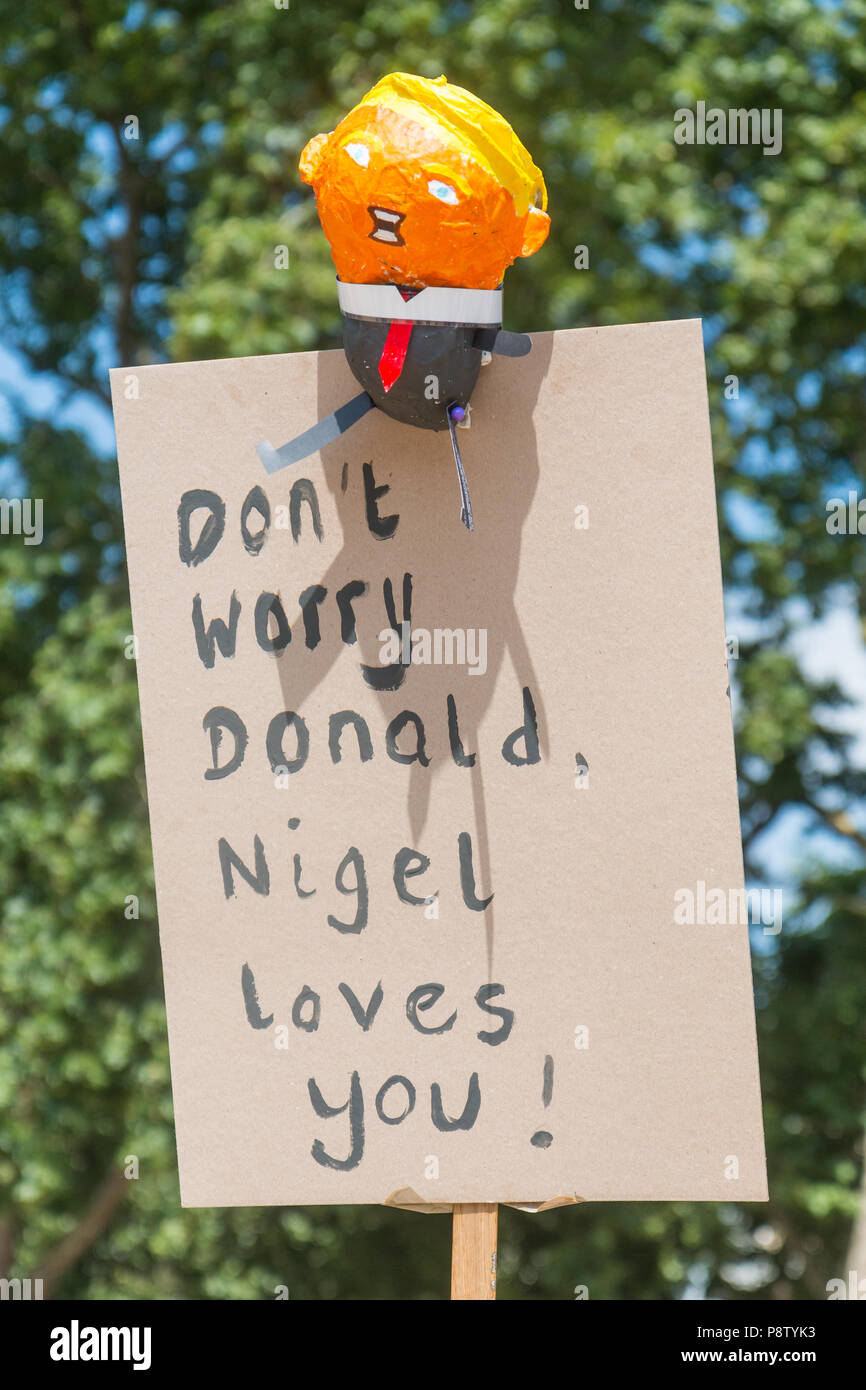 Don't
Worry
Donald,
Nigel
loves
you!
alamy
Image ID: P8TYK3
www.alamy.com